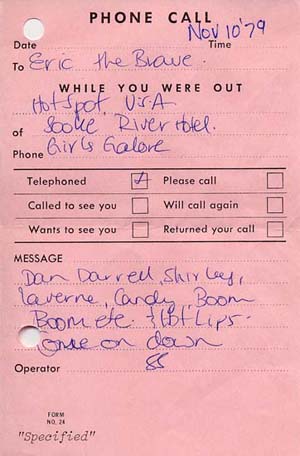 PHONE CALL
Nov 10 '79
Date Time
To Eric the Brave.
WHILE YOU WERE OUT
HotSpot, U.S.A
of Sooke River Hotel.
Phone Girls Galore
Telephoned Please call
Called to see you Will call again
Wants to see you Returned your call
MESSAGE
Dan Darrell, Shirley,
Laverne, Candy, Boom
Boom etc. + Hot Lips.
Come on down
Operator SS
FORM
NO. 24
"Specified"